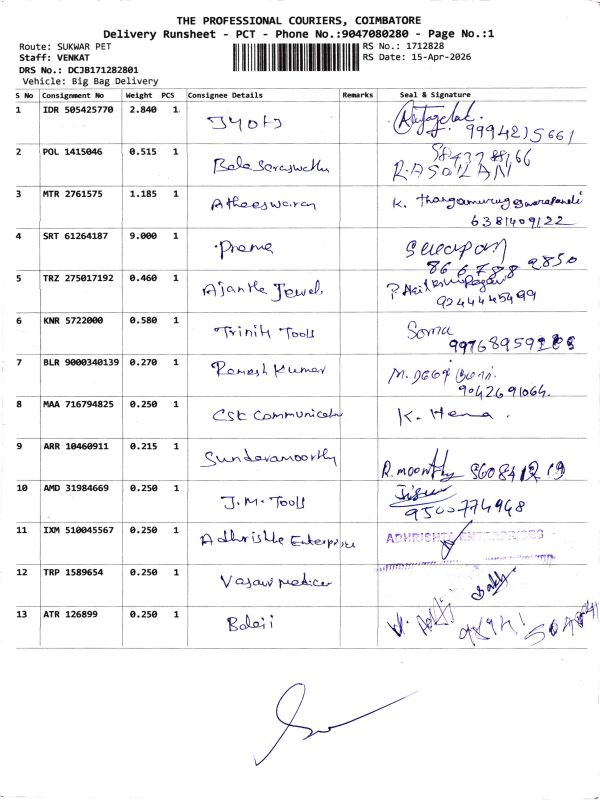 THE PROFESSIONAL COURIERS, COIMBATORE
Delivery Runsheet - PCT - Phone No.:9047080280 - Page No.:1
Route: SUKWAR PET
RS No.: 1712828
Staff: VENKAT
RS Date: 15-Apr-2026
DRS No.: DCJB171282801
Vehicle: Big Bag Delivery
S No Consignment No Weight PCS Consignee Details Remarks Seal & Signature
1 IDR 505425770 2.840 1 Jyoti
9994215661
2 POL 1415046 0.515 1 Balasaraswathy
R. ASOKAN
3 MTR 2761575 1.185 1 Atheeswaran K.
6381409122
4 SRT 61264187 9.000 1 Prema
866788 2850
5 TRZ 275017192 0.460 1 Ajantha Jewels
6 KNR 5722000 0.580 1 Trinity Tools Soma
7 BLR 9000340139 0.270 1 Ramesh Kumar M.
9042691064.
8 MAA 716794825 0.250 1 CSK Communication K. Hema.
9 ARR 10460911 0.215 1 Sundaramoorthy R. moorthy
10 AMD 31984669 0.250 1 J.M. Tools
9500774948
11 IXM 510045567 0.250 1 Adhrishta Enterprises ADHRISHTA ENTERPRISES
12 TRP 1589654 0.250 1 Vasavi Medicar
13 ATR 126899 0.250 1 Balaji